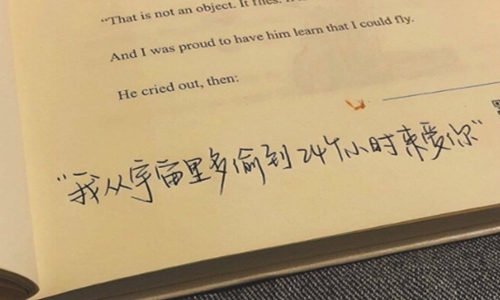 "That is not an object. It flies. It
And I was proud to have him learn that I could fly.
He cried out, then:
"我从宇宙里多偷到24个小时来爱你"